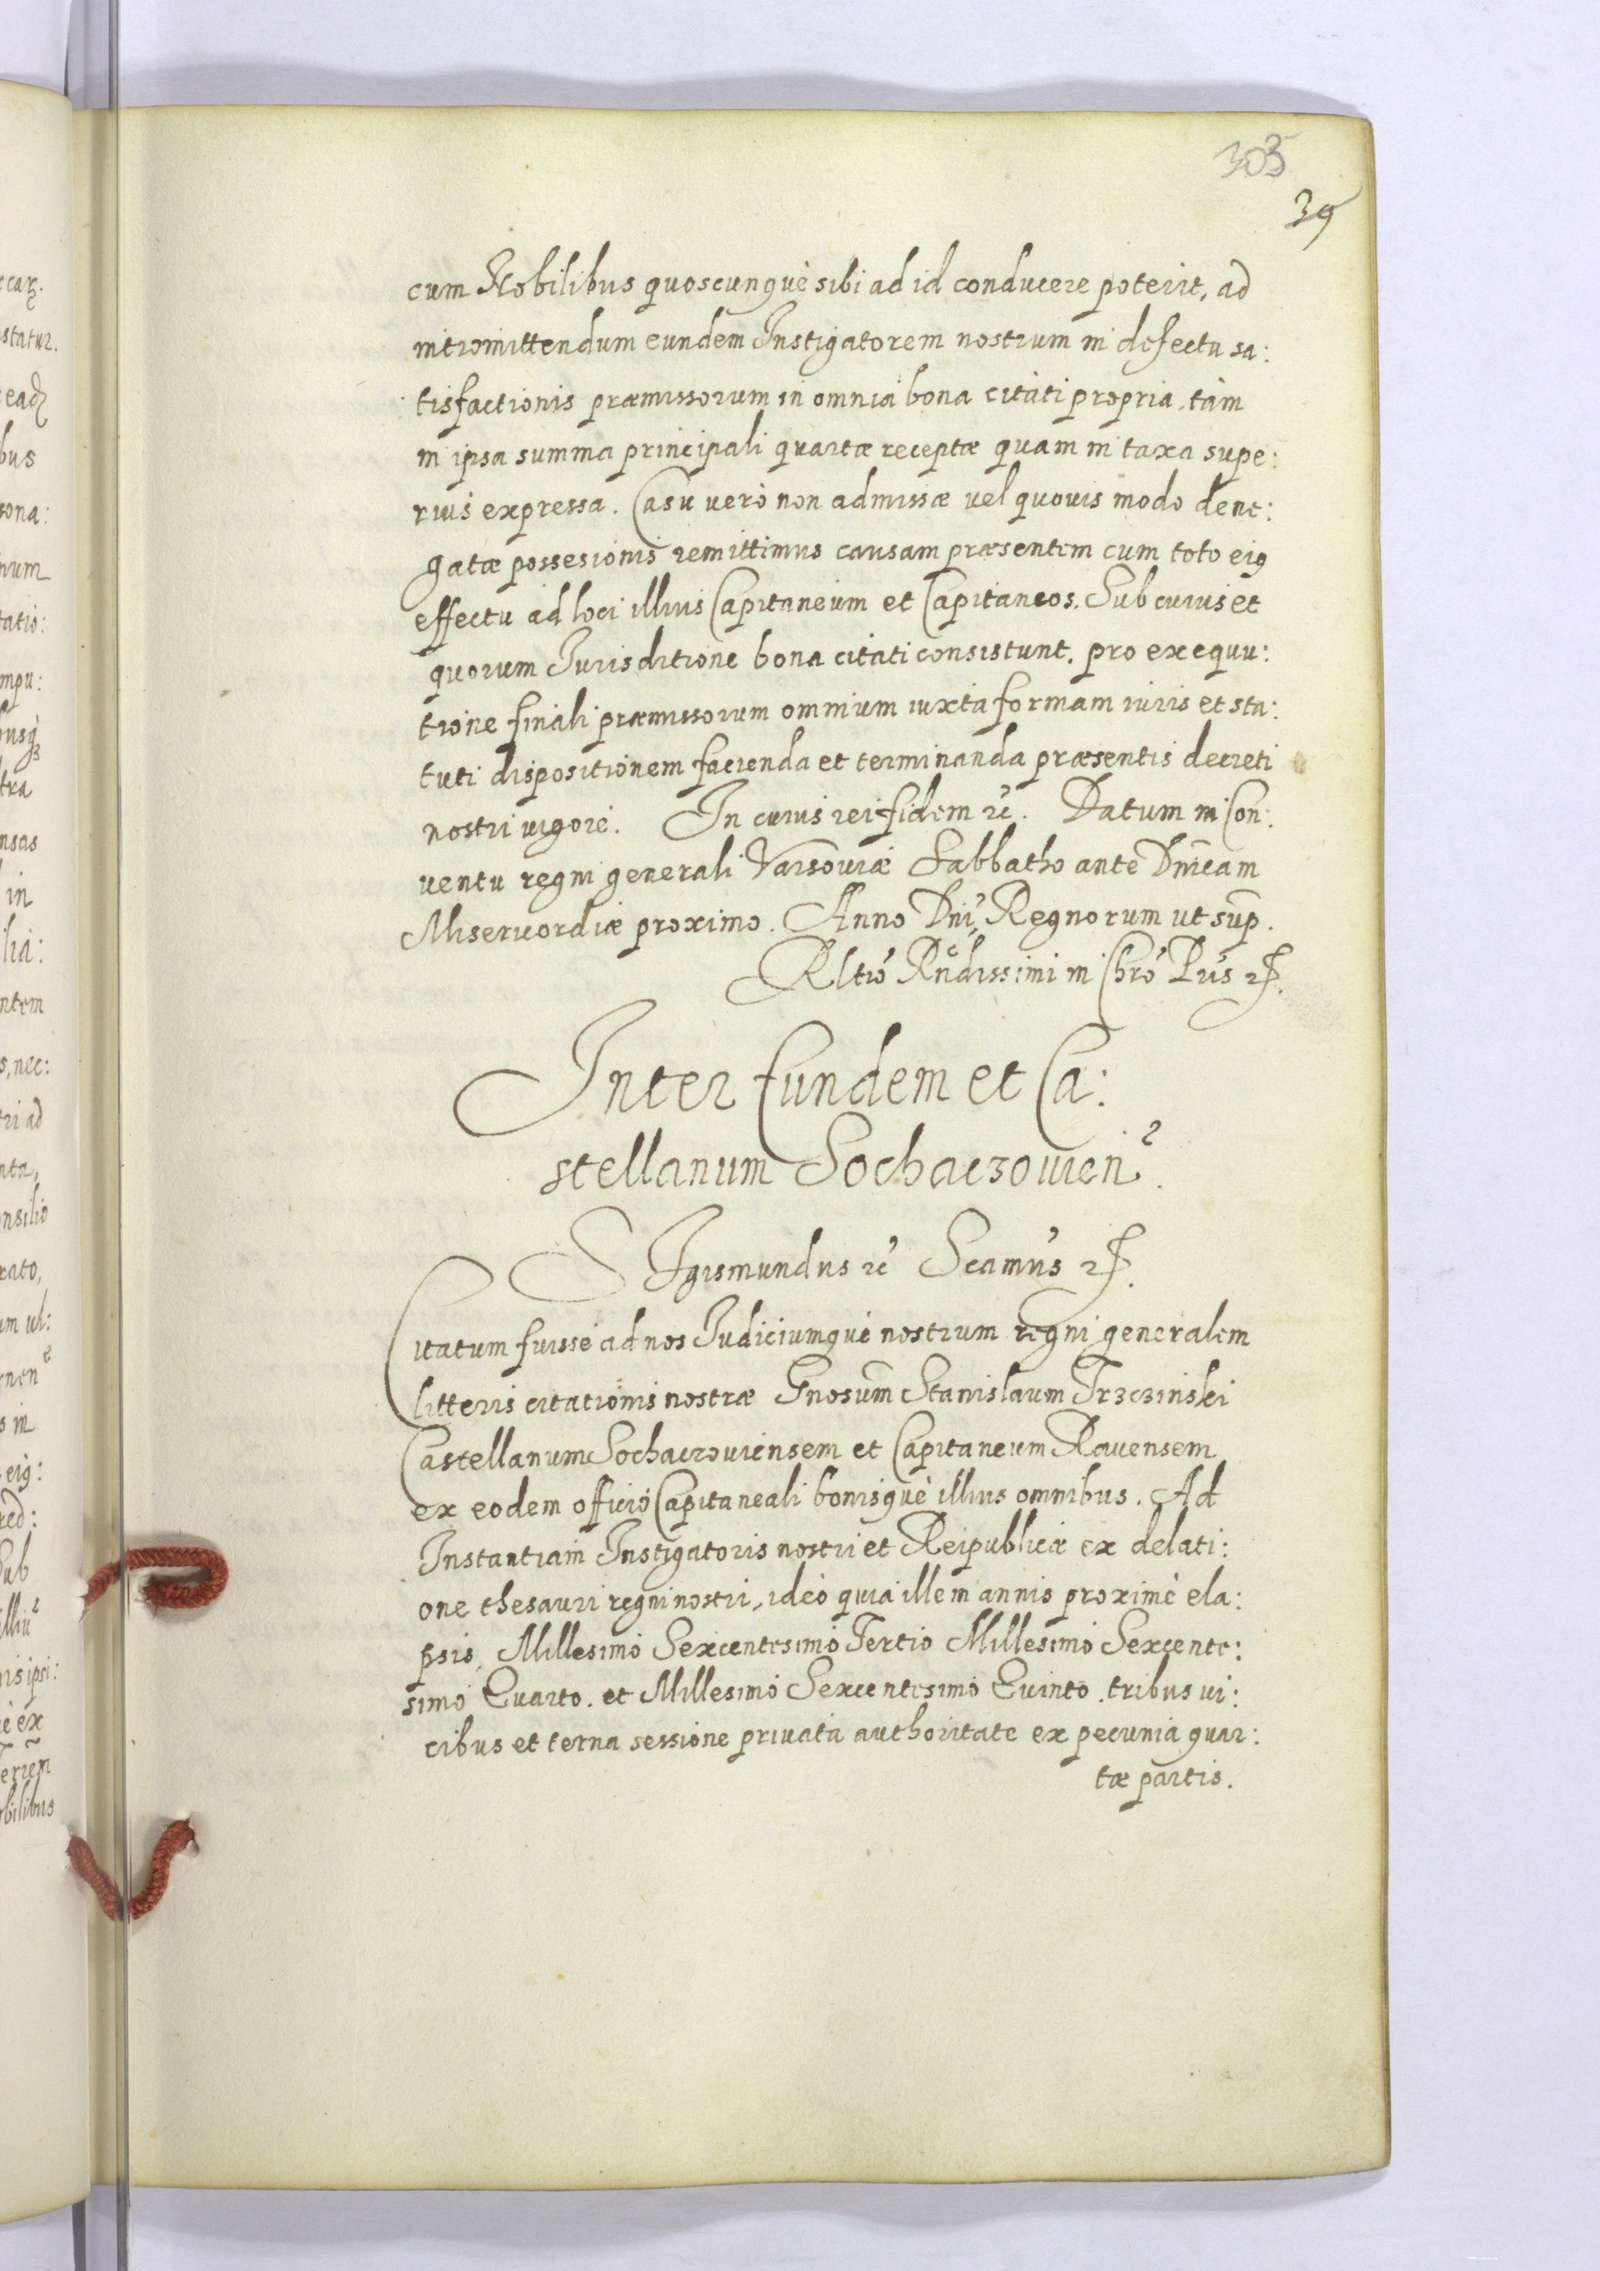 303
39
cum Nobilibus quoscunquè sibi ad id conducere poterit, ad
intromittendum eundem Instigatorem nostrum in defectu sa:
tisfactionis præmissorum in omnia bona citati propria, tàm
in ipsa summa principali quartæ receptæ quam in taxa supe:
rius expressa. Casu verò non admissæ vel quovis modo dene:
gatæ possesionis remittimus causam præsentem cum toto eig
effectu ad loci illius Capitaneum et Capitaneos. Sub cuius et
quorum Jurisditione bona citati consistunt. pro exequu:
tione finali præmissorum omnium iuxta formam iuris et sta:
tuti dispositionem facienda et terminanda præsentis decreti
nostri vigore. In cuius rei fidem rc. Datum in Con:
ventu regni generali Varsoviæ Sabbatho ante Dnicam
Miseruordiæ proximo. Anno Dni, Regnorum ut sup.
Rltio Rndissimi in Chro Pris
Inter Eundem et Ca:
stellanum Sochaczovien.
SIgismundus rc Scamus
Citatum fuisse ad nos Judiciumquè nostrum regni generalem
litteris citationis nostræ Gnosum Stanislaum Trzczinski
Castellanum Sochaczoviensem et Capitaneum Ravensem
ex eodem officio Capitaneali bonisquè illius omnibus. Ad
Instantiam Instigatoris nostri et Reipublicæ ex delati:
one thesauri regni nostri, ideò quia ille in annis proximè ela:
psis, Millesimo Sexcentesimo Tertio Millesimo Sexcente:
simo Quarto. et Millesimo Sexcentesimo Quinto. tribus vi:
cibus et terna sessione privata authoritate ex pecunia quar:
tæ partis.